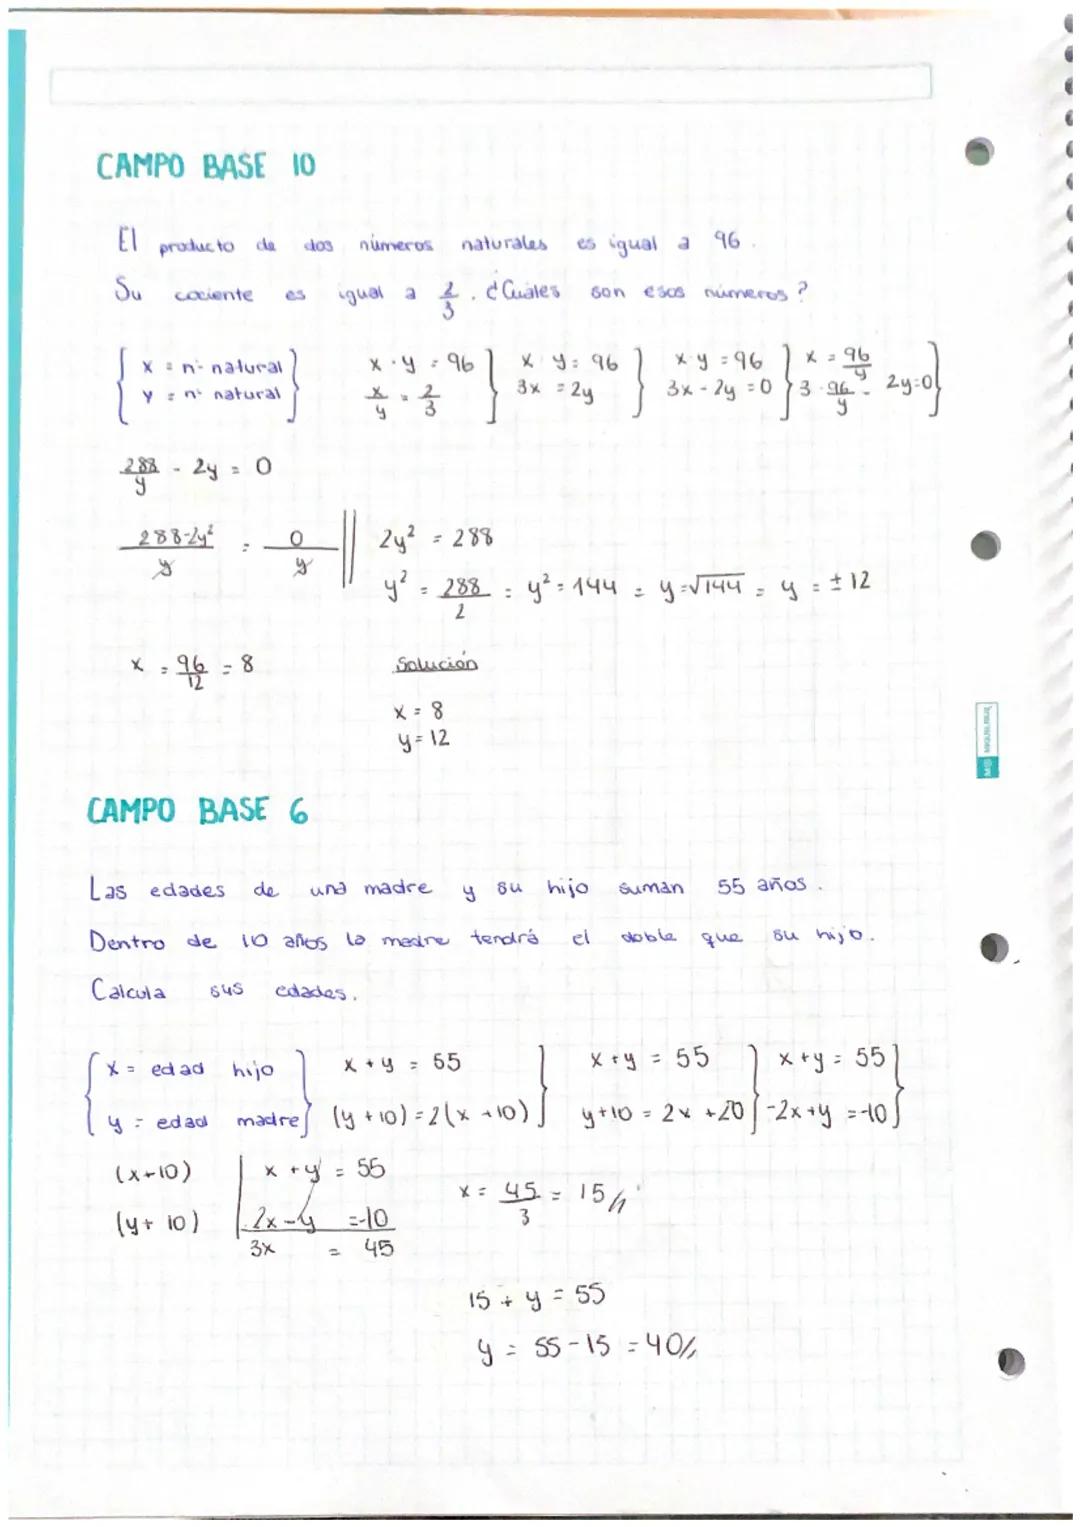 CAMPO BASE 10
El producto de dos números naturales es igual a 96.
Su cociente es igual a 2/3. ¿Cuáles son esos números?
{ x = nº natural } x · y = 96 } x · y = 96 } x · y = 96 } x = 96/y }
{ y = nº natural } x/y = 2/3 } 3x = 2y } 3x - 2y = 0 } 3 · 96/y - 2y = 0 }
288/y - 2y = 0
288-2y²/y = 0/y || 2y² = 288
y² = 288/2 = y² = 144 = y = √144 = y = ± 12
x = 96/12 = 8
Solución
x = 8
y = 12
CAMPO BASE 6
Las edades de una madre y su hijo suman 55 años.
Dentro de 10 años la madre tendrá el doble que su hijo.
Calcula sus edades.
{ x = edad hijo } x + y = 55 } x + y = 55 } x + y = 55 }
{ y = edad madre } (y + 10) = 2(x + 10) } y + 10 = 2x + 20 } -2x + y = -10 }
(x + 10) | x + y = 55
(y + 10) | 2x - y = -10
3x = 45
x = 45/3 = 15//
15 + y = 55
y = 55 - 15 = 40//